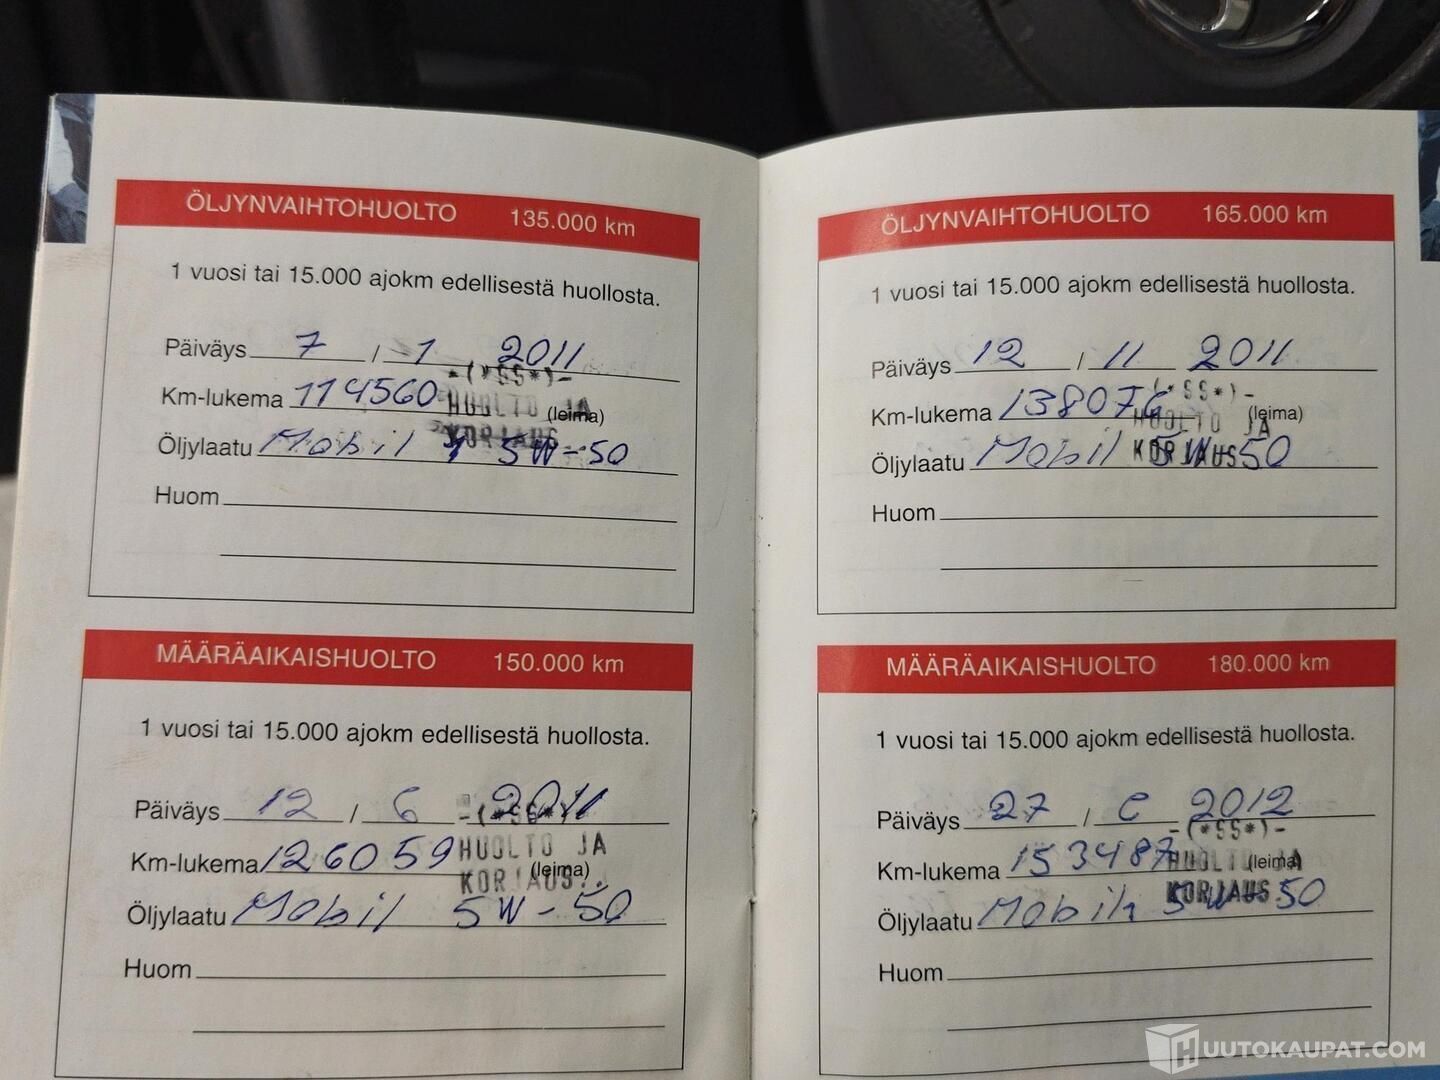 ÖLJYNVAIHTOHUOLTO 135.000 km
1 vuosi tai 15.000 ajokm edellisestä huollosta.
Päiväys 7 / 1 2011
-(*SS*)-
Km-lukema 114560 HUOLTO JA (leima)
KORJAUS
Öljylaatu Mobil 1 5W-50
Huom
MÄÄRÄAIKAISHUOLTO 150.000 km
1 vuosi tai 15.000 ajokm edellisestä huollosta.
Päiväys 12 / 6 2011
-(*SS*)-
HUOLTO JA
Km-lukema 126059 (leima)
KORJAUS
Öljylaatu Mobil 5W-50
Huom
ÖLJYNVAIHTOHUOLTO 165.000 km
1 vuosi tai 15.000 ajokm edellisestä huollosta.
Päiväys 12 / 11 2011
(*SS*)-
Km-lukema 138076 (leima)
HUOLTO JA
KORJAUS
Öljylaatu Mobil 5W-50
Huom
MÄÄRÄAIKAISHUOLTO 180.000 km
1 vuosi tai 15.000 ajokm edellisestä huollosta.
Päiväys 27 / 2012
-(*SS*)-
Km-lukema 153487 HUOLTO JA (leima)
KORJAUS
Öljylaatu Mobil 1 5W-50
Huom
HUUTOKAUPAT.COM